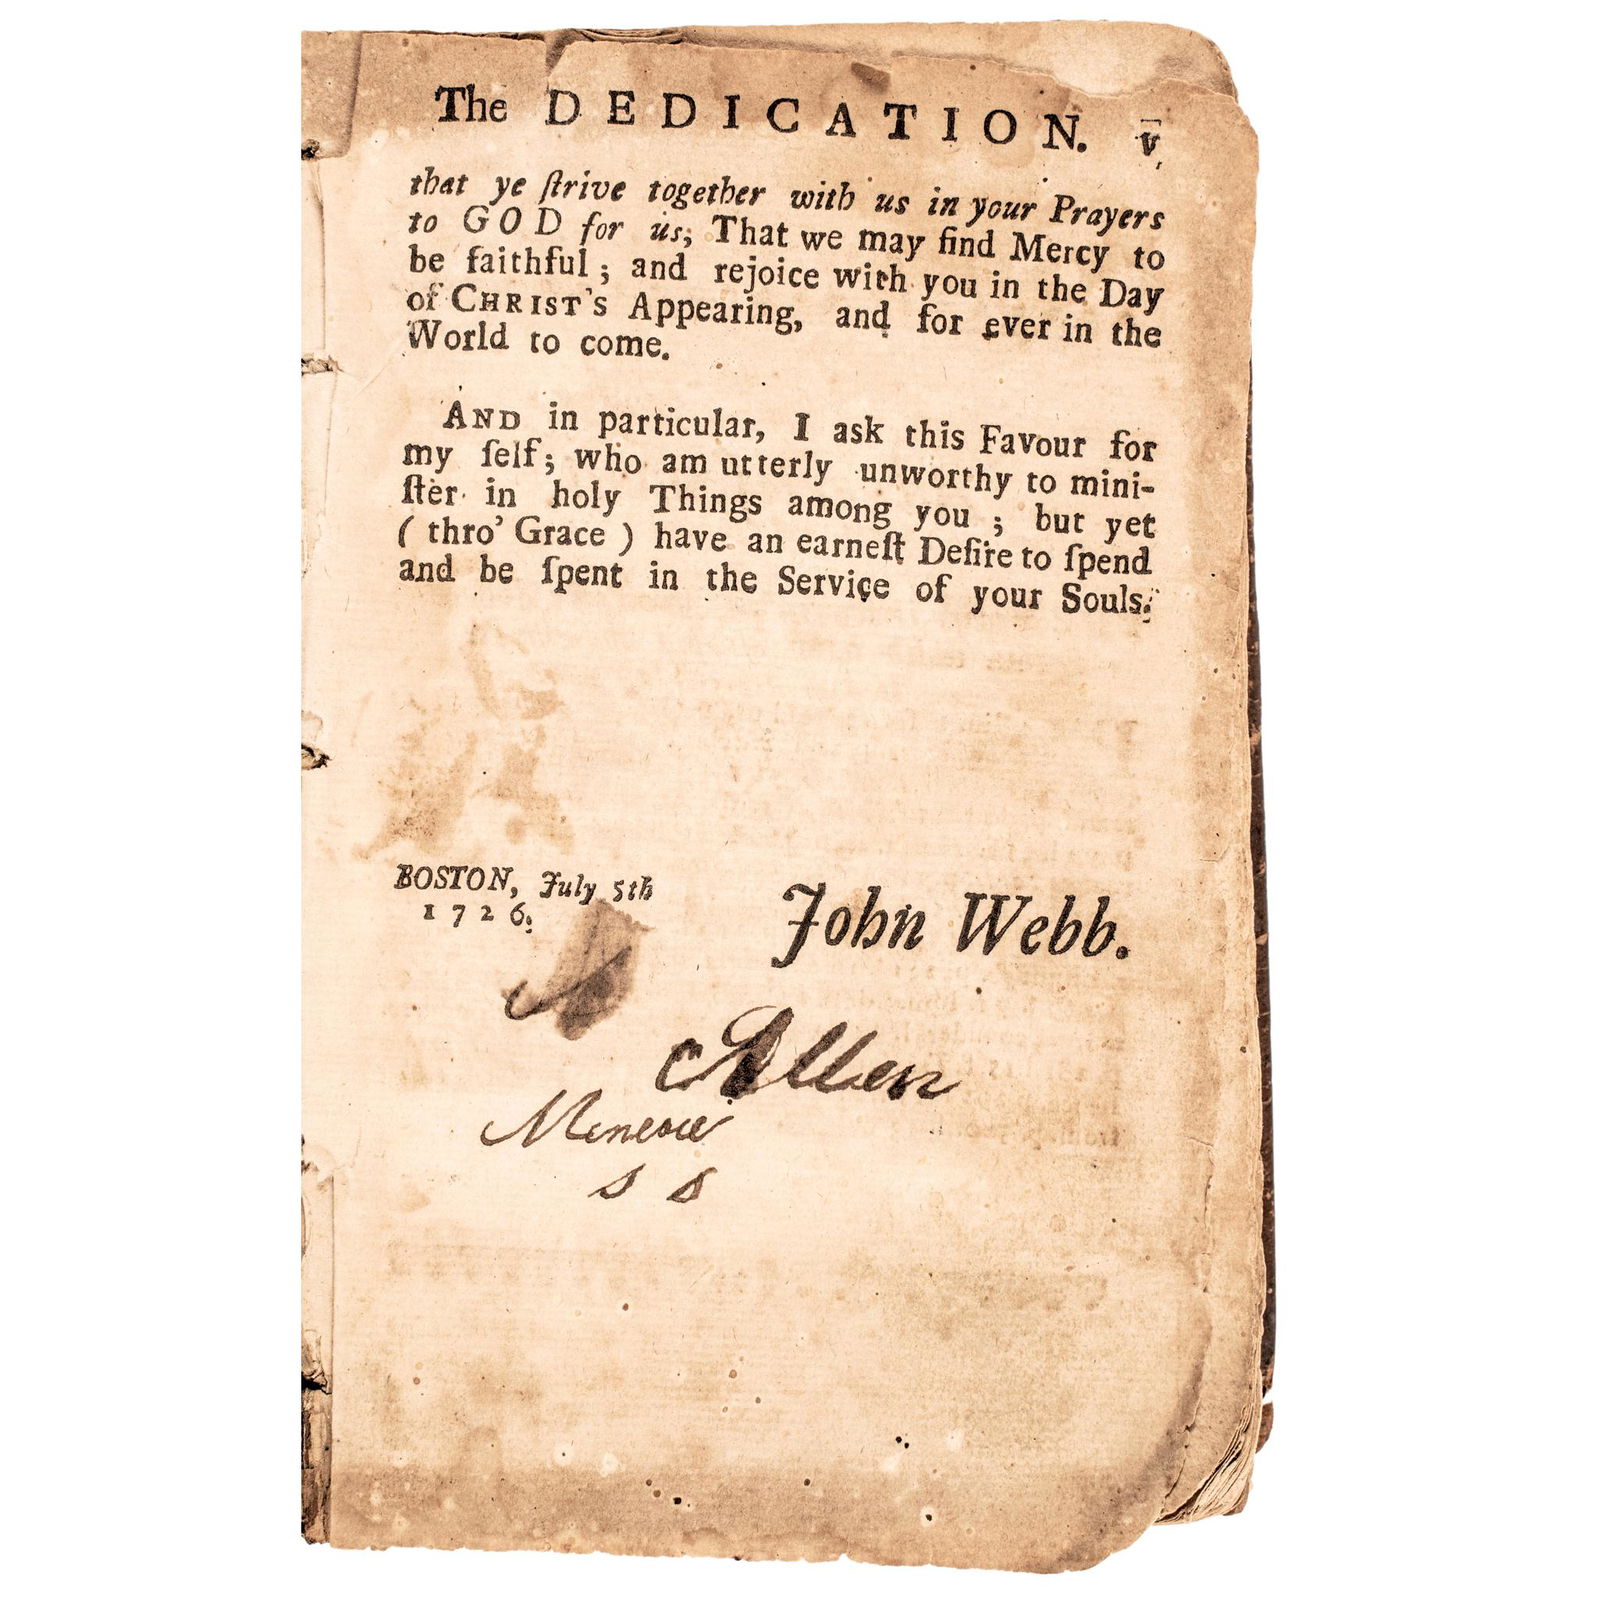 The DEDICATION. v
that ye ſtrive together with us in your Prayers
to GOD for us; That we may find Mercy to
be faithful; and rejoice with you in the Day
of CHRIST'S Appearing, and for ever in the
World to come.
AND in particular, I ask this Favour for
my ſelf; who am utterly unworthy to mini-
ſter in holy Things among you; but yet
(thro' Grace) have an earneſt Deſire to ſpend
and be ſpent in the Service of your Souls.
BOSTON, July 5th
1726.
John Webb.
Allen
s s